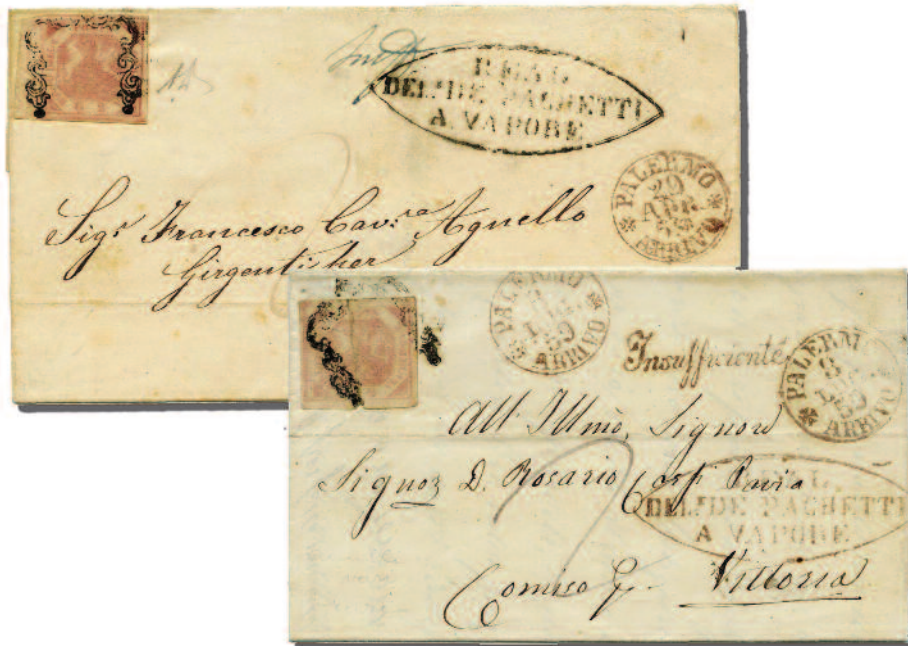 REAL
DEL.NE DE' PACHETTI
A VAPORE
PALERMO
20
APR.
59
ARRIVO
Sig.r Francesco Cav.ra Agnello
Girgenti per
PALERMO
59
ARRIVO
Insufficiente
PALERMO
8
59
ARRIVO
All' Illmo, Signore
Signor D. Rosario
REAL
DEL.NE DE' PACHETTI
A VAPORE
Comiso p. Vittoria